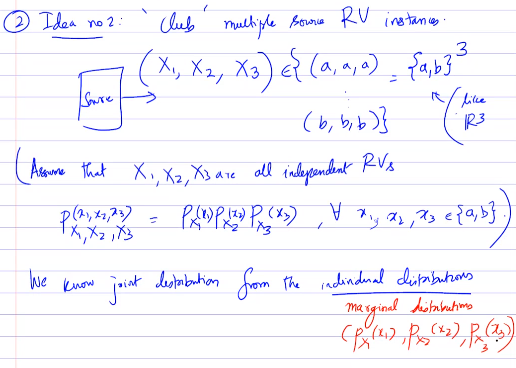 ② Idea no 2: 'Club' multiple source RV instances.
Source → (X₁, X₂, X₃) ∈ { (a, a, a) = {a,b}³
⋮
(b, b, b)}
(like ℝ3
(Assume that X₁, X₂, X₃ are all independent RVs
P_{X₁,X₂,X₃}(x₁,x₂,x₃) = P_{X₁}(x₁) P_{X₂}(x₂) P_{X₃}(x₃) , ∀ x₁, x₂, x₃ ∈ {a,b}.)
We know joint distribution from the individual distributions
marginal distributions
(P_{X₁}(x₁), P_{X₂}(x₂), P_{X₃}(x₃))